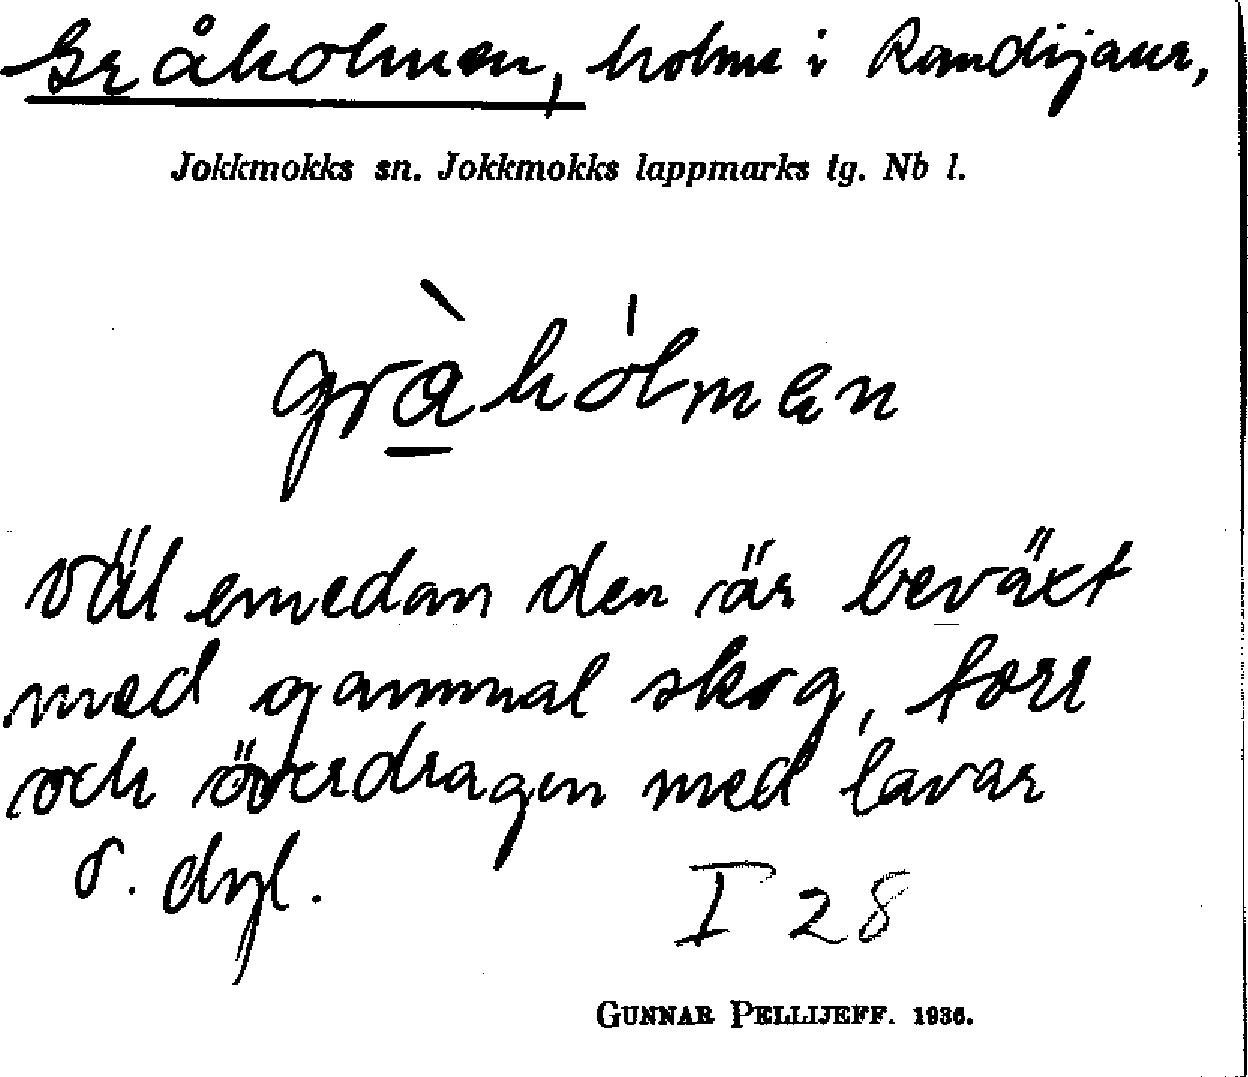 Gråholmen, holme i Randijaur,
Jokkmokks sn. Jokkmokks lappmarks tg. Nb l.
gràhólmen
väl emedan den är beväxt
med gammal skog, torr
och överdragen med lavar
o. dyl. I 28
GUNNAR PELLIJEFF. 1936.